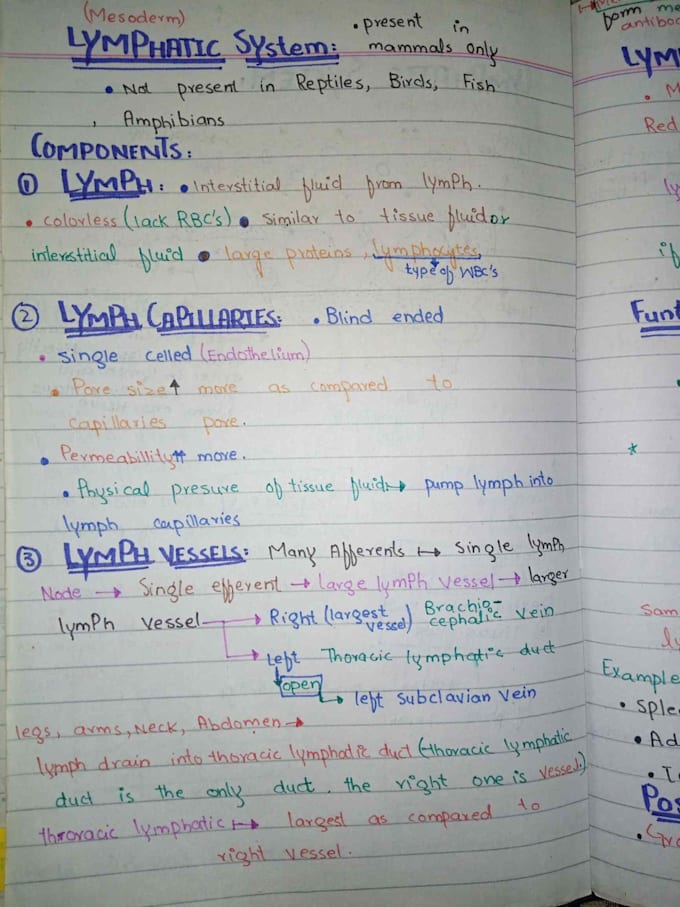 (Mesoderm)
LYMPHATIC System: • present in
mammals only
• Not present in Reptiles, Birds, Fish
, Amphibians
COMPONENTS:
① LYMPH: • Interstitial fluid from lymph.
• colorless (lack RBC's) • similar to tissue fluid or
interstitial fluid • large proteins, lymphocytes,
type of WBC's
② LYMPH CAPILLARIES: • Blind ended
• single celled (Endothelium)
• Pore size ↑ more as compared to
capillaries pore.
• Permeabillity ⇈ more.
• Physical presure of tissue fluid ↦ pump lymph into
lymph capillaries
③ LYMPH VESSELS: Many Afferents ↦ single lymph
Node → Single efferent → large lymph vessel → larger
lymph vessel → Right (largest vessel) Brachio-cephalic vein
→ Left Thoracic lymphatic duct
open
→ left subclavian vein
legs, arms, Neck, Abdomen →
lymph drain into thoracic lymphatic duct (thoracic lymphatic
duct is the only duct. the right one is vessel.)
thoracic lymphatic ↦ largest as compared to
right vessel.
form me
antibo
LYM
• M
Red
ly
if
Funt
*
Sam
ly
Example
• Sple
• Ad
Pos
• Gra